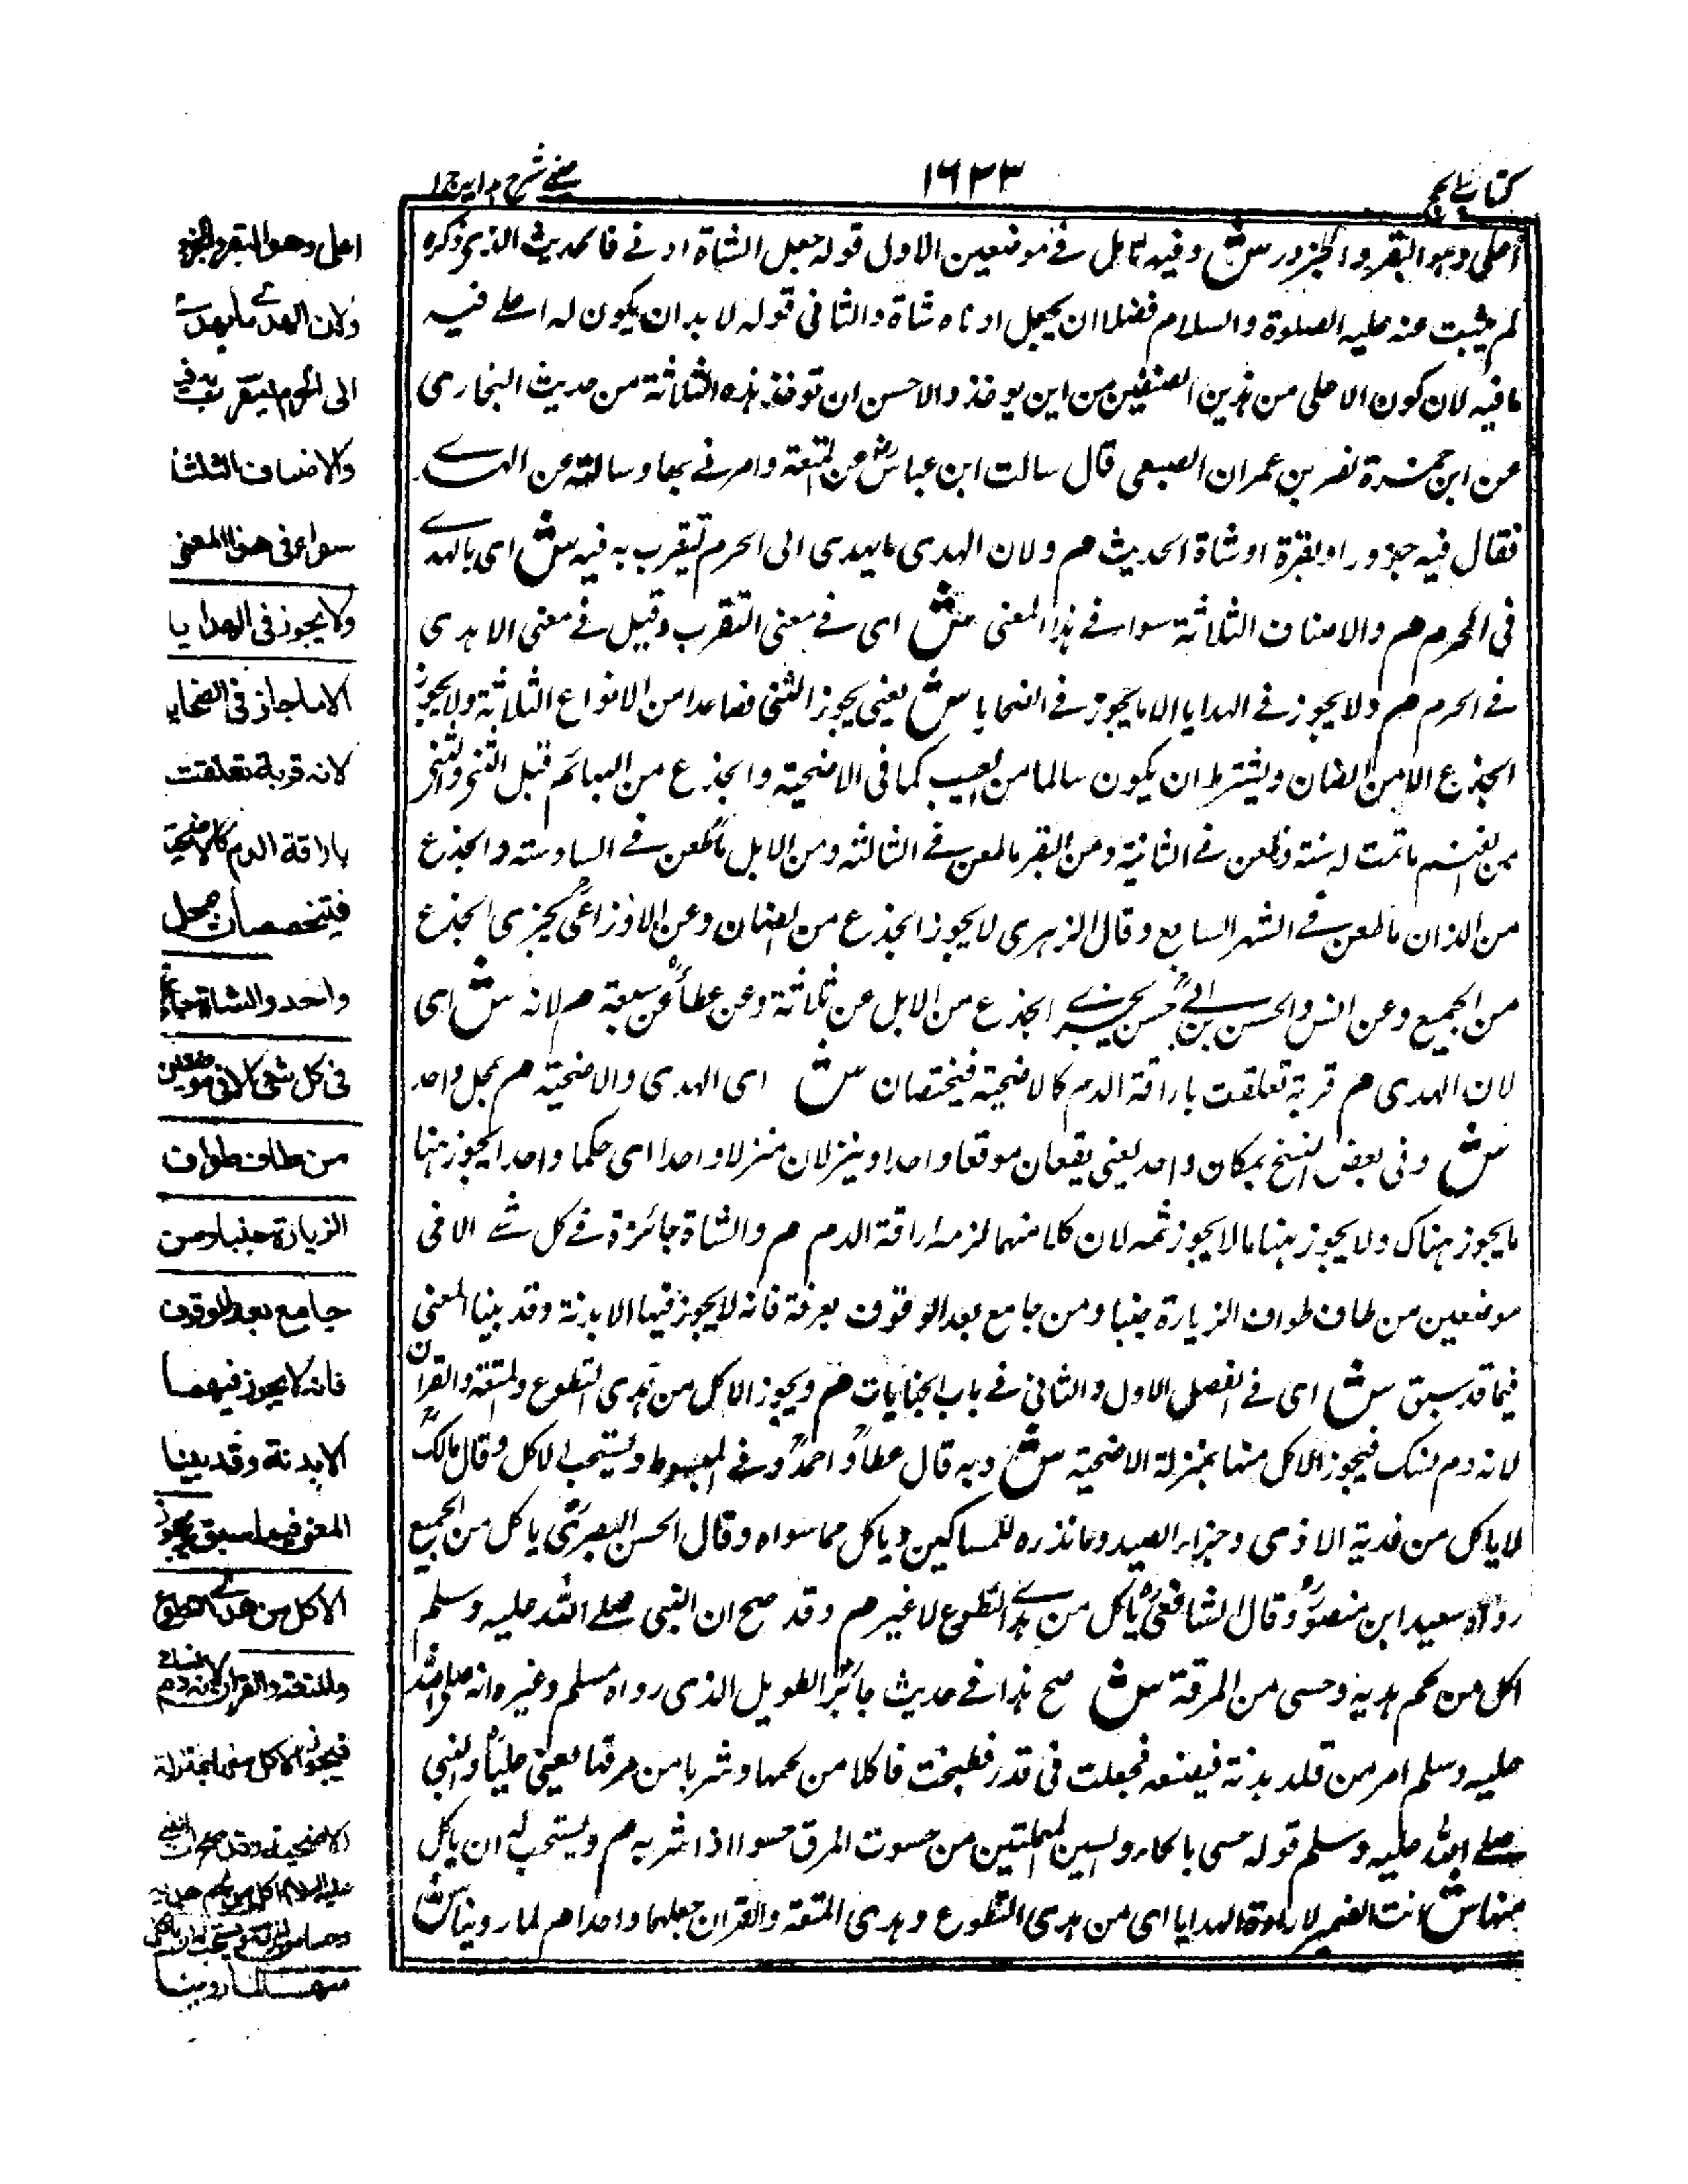 كتاب الحج
١٦٣٣
عيني شرح هدايه ج ١
اعلى وهو البقر والجزور ش وفيه تامل في موضعين الاول قوله جعل الشاة ادنے فالحديث الذي ذكره
لم يثبت عنه عليه الصلوة والسلام فضلا ان يجعل ادناه شاة والثاني قوله لا بد ان يكون له اعلے فنيه
ما فيه لان كون الاعلى من هذين الصنفين من اين يوخذ والاحسن ان توخذ هذه الثلاثة من حديث البخاري
عن ابن حمزة نصر بن عمران الضبعي قال سالت ابن عباس عن المتعة وامرنے بها وسالته عن الهدے
فقال فيه جزور او بقرة او شاة الحديث م ولان الهدى ما يهدى الى الحرم ليتقرب به فيه ش اى بالهدے
فى الحرم م والاصناف الثلاثة سواء في هذا المعنى ش اى في معنى التقرب وقيل في معنى الاهدى
في الحرم م ولا يجوز في الهدايا الا ما يجوز في الضحايا ش يعنى يجوز الثنى فصاعدا من الانواع الثلاثة ولا يجوز
الجذع الا من الضان ويشترط ان يكون سالما من العيب كما فى الاضحية والجذع من البهائم قبل الثنى والثنى
من الغنم ما تمت له سنة وطعن في الثانية ومن البقر ما طعن في الثالثة ومن الابل ما طعن في السادسة والجذع
من الذان ما طعن في الشهر السابع وقال الزهرى لا يجوز الجذع من الضان وعن الاوزاعى يجزى الجذع
من الجميع وعن انس والحسن بن ابي الحسن يجزے الجذع من الابل عن ثلاثة وعن عطاء عن سبعة م لانه ش اى
لان الهدى م قربة تعلقت باراقة الدم كالاضحية فيختصان ش اى الهدى والاضحية م بمحل واحد
ش وفى بعض النسخ بمكان واحد يعنى يقعان موقعا واحدا وينزلان منزلا واحدا اى حكما واحدا يجوز هنا
ما يجوز هناك ولا يجوز هنا ما لا يجوز ثمه لان كلا منهما لزمه اراقة الدم م والشاة جائزة في كل شے الا فى
موضعين من طاف طواف الزيارة جنبا ومن جامع بعد الوقوف بعرفة فانه لا يجوز فيها الا بدنة وقد بينا المعنى
فيما قد سبق ش اى في الفصل الاول والثانى في باب الجنايات م ويجوز الاكل من هدى التطوع والمتعة والقران
لانه دم نسك فيجوز الاكل منها بمنزلة الاضحية ش وبه قال عطاء واحمد وفي المبسوط ويستحب الاكل وقال مالك
لا ياكل من فدية الاذى وجزاء الصيد وما نذره للمساكين وياكل مما سواه وقال الحسن البصرى ياكل من الجميع
رواه سعيد ابن منصور وقال الشافعى ياكل من هدے التطوع لا غير م وقد صح ان النبى صلے الله عليه وسلم
اكل من لحم هديه وحسى من المرقة ش صح هذا في حديث جابر الطويل الذى رواه مسلم وغيره انه صلى الله
عليه وسلم امر من قلد بدنة فبضعه فجعلت فى قدر فطبخت فاكلا من لحمها وشربا من مرقها يعنى عليا والنبى
صلے الله عليه وسلم قوله حسى بالحاء والسين المهملتين من حسوت المرق حسوا اذا شربه م ويستحب له ان ياكل
منها ش انث الضمير لارادة الهدايا اى من هدى التطوع وهدى المتعة والقران جعلهما واحدا م لما روينا ش
اعلى وهو البقر والجزور
ولان الهدے ما يهدے
الى الحرم ليتقرب به فيه
والاصناف الثلثة
سواء فى هذا المعنى
ولا يجوز فى الهدايا
الا ما جاز فى الضحايا
لانه قربة تعلقت
باراقة الدم كالاضحية
فيتخصصان بمحل
واحد والشاة جائزة
فى كل شئ الا فى موضعين
من طاف طواف
الزيارة جنبا ومن
جامع بعد الوقوف
فانه لا يجوز فيهما
الا بدنة وقد بينا
المعنى فيما سبق ويجوز
الاكل من هدے التطوع
والمتعة والقران لانه دم نسك
فيجوز الاكل منها بمنزلة
الاضحية وقد صح ان النبى
عليه السلام اكل من لحم هديه
وحسا من المرقة ويستحب له ان ياكل
منها لما روينا